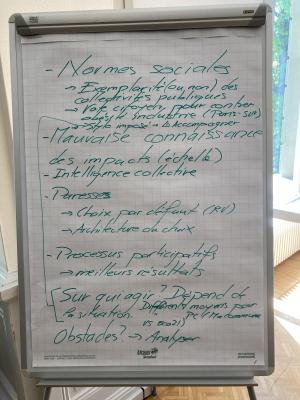 - Normes sociales
→ Exemplarité (ou non) des
collectivités publiques
→ Vote citoyen, pour contrer
objectif industrie (Paris-SUV)
→ Style imposé → Accompagner
- Mauvaise connaissance
des impacts (échelle)
- Intelligence collective
- Paresses
→ Choix par défaut (RV)
→ Architecture du choix
- Processus participatifs
→ meilleurs resultats
Sur qui agir? Dépend de
la situation.
Différents moyens pour
vs
Obstacles? → Analyser